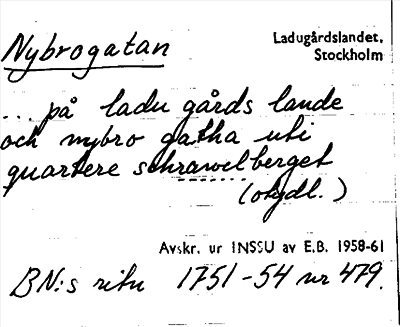 Nybrogatan
Ladugårdslandet,
Stockholm
... på ladu gårds lande
och nybro gatha uti
quartere schrawelberget
(otydl.)
Avskr. ur INSSU av E.B. 1958-61
BN:s ritn 1751-54 nr 479.